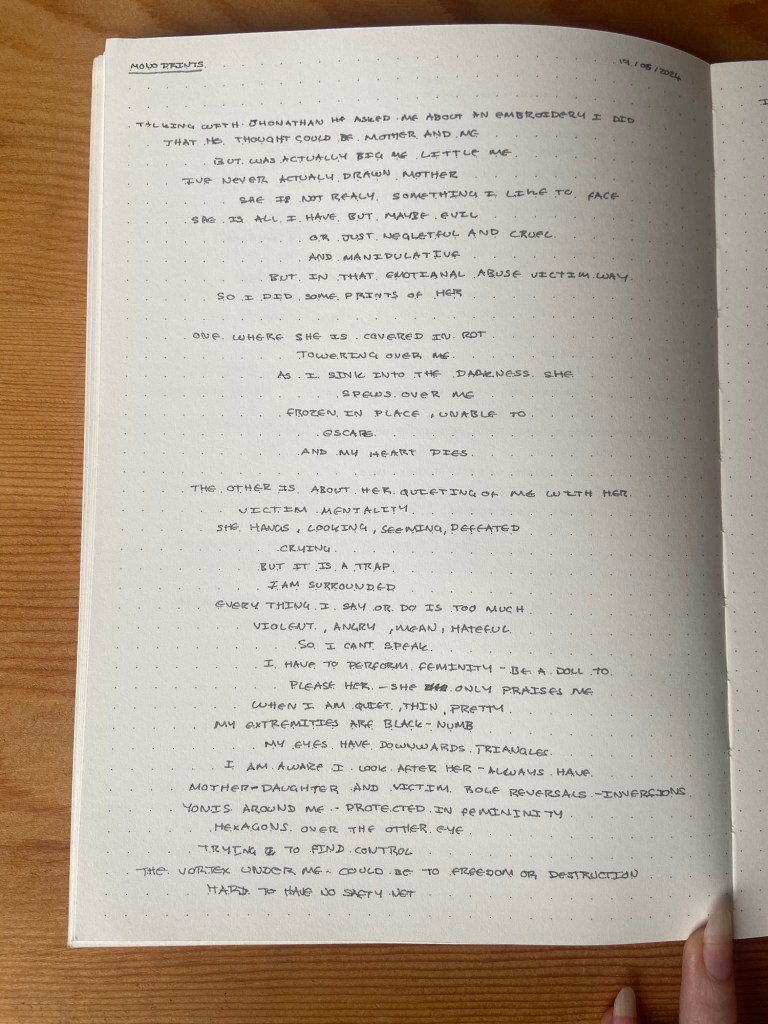 MONO PRINTS.
19/05/2024
TALKING WITH JHONATHAN HE ASKED ME ABOUT AN EMBROIDERY I DID
THAT HE THOUGHT COULD BE MOTHER AND ME
BUT WAS ACTUALLY BIG ME LITTLE ME.
I'VE NEVER ACTUALY DRAWN MOTHER
SHE IS NOT REALY SOMETHING I LIKE TO FACE
SHE IS ALL I HAVE BUT MAYBE EVIL
OR JUST NEGLETFUL AND CRUEL.
AND MANIPULATIVE
BUT IN THAT EMOTIANAL ABUSE VICTIM WAY.
SO I DID SOME PRINTS OF HER
ONE WHERE SHE IS COVERED IN ROT
TOWERING OVER ME.
AS I SINK INTO THE DARKNESS SHE
SPEWS OVER ME
FROZEN IN PLACE, UNABLE TO
ESCAPE.
AND MY HEART DIES.
THE OTHER IS ABOUT HER QUIETING OF ME WITH HER
VICTIM MENTALITY.
SHE HANGS, LOOKING, SEEMING, DEFEATED
CRYING.
BUT IT IS A TRAP.
I AM SURROUNDED
EVERY THING I SAY OR DO IS TOO MUCH
VIOLENT, ANGRY, MEAN, HATEFUL.
SO I CANT SPEAK.
I HAVE TO PERFORM FEMINITY - BE A DOLL TO
PLEASE HER - SHE ONLY PRAISES ME
WHEN I AM QUIET, THIN, PRETTY.
MY EXTREMITIES ARE BLACK - NUMB
MY EYES HAVE DOWNWARDS TRIANGLES.
I AM AWARE I LOOK AFTER HER - ALWAYS HAVE.
MOTHER-DAUGHTER AND VICTIM ROLE REVERSALS - INVERSIONS
YONIS AROUND ME - PROTECTED IN FEMININITY
HEXAGONS OVER THE OTHER EYE
TRYING TO FIND CONTROL
THE VORTEX UNDER ME - COULD BE TO FREEDOM OR DESTRUCTION
HARD TO HAVE NO SAFTY NET